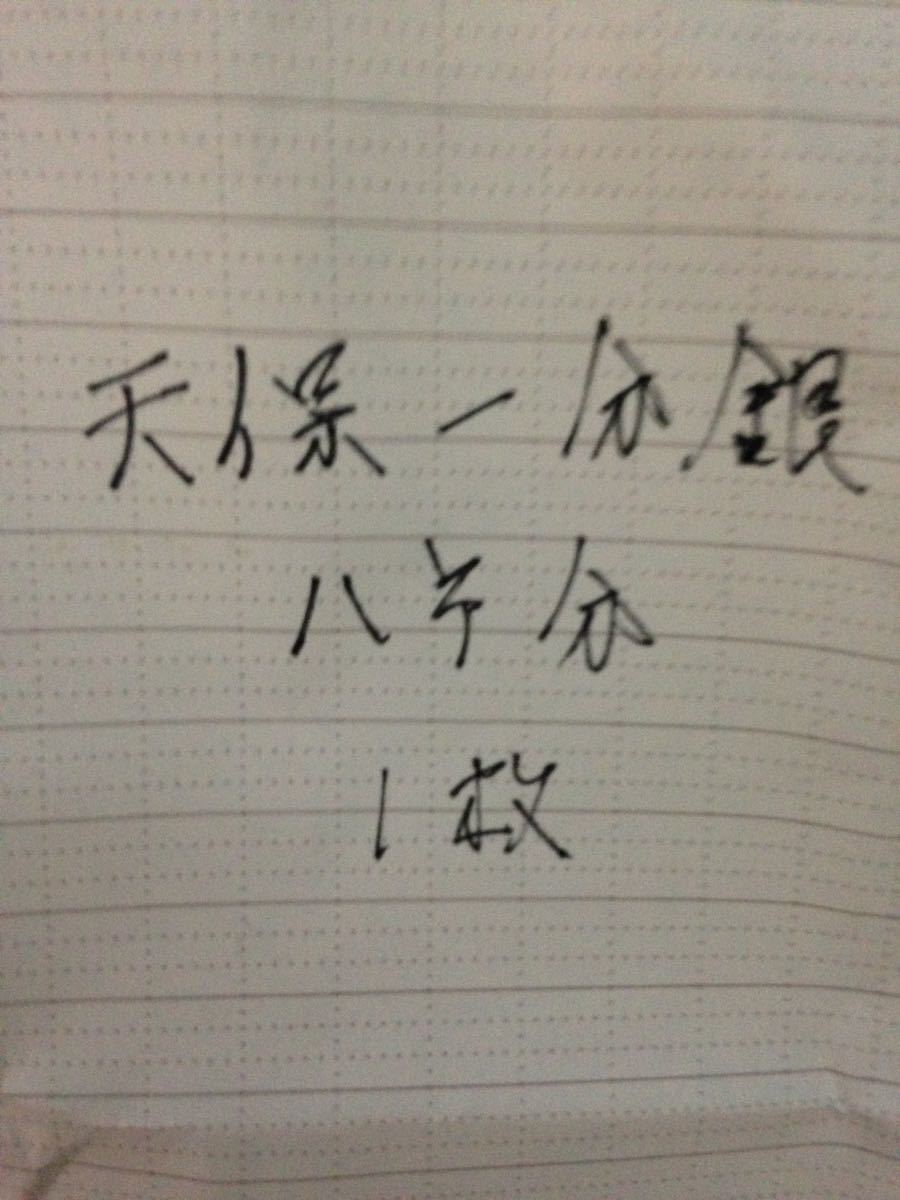 天保一分銀
八予分
1枚